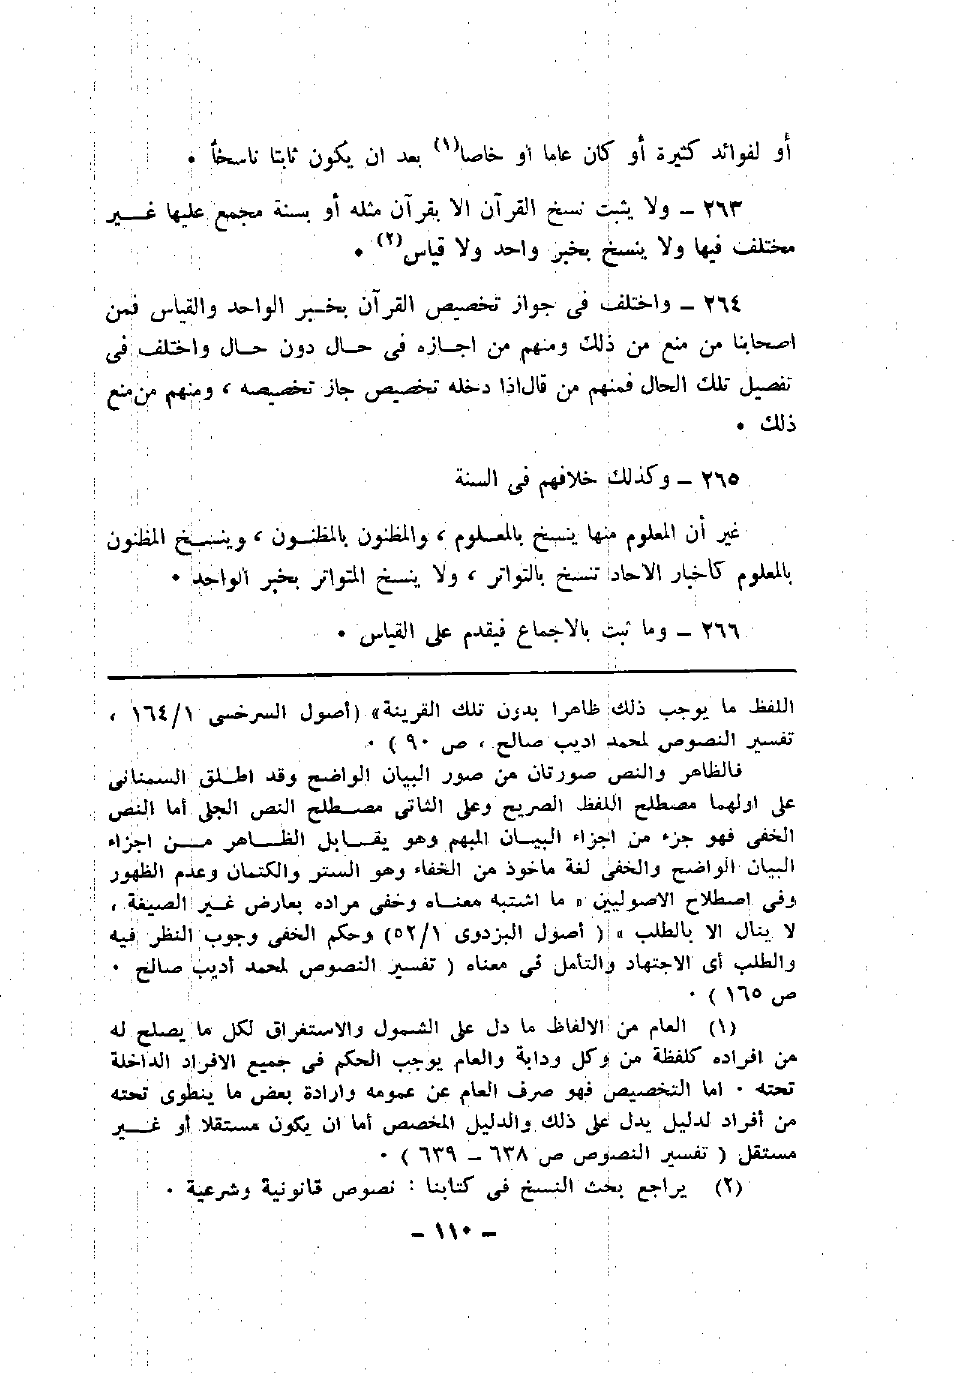 أو لفوائد كثيرة أو كان عاما او خاصا(١) بعد ان يكون ثابتا ناسخاً ٠
٢٦٣ – ولا يثبت نسخ القرآن الا بقرآن مثله أو بسنة مجمع عليها غير
مختلف فيها ولا ينسخ بخبر واحد ولا قياس(٢) ٠
٢٦٤ – واختلف فى جواز تخصيص القرآن بخبر الواحد والقياس فمن
اصحابنا من منع من ذلك ومنهم من اجازه فى حال دون حال واختلف فى
تفصيل تلك الحال فمنهم من قال اذا دخله تخصيص جاز تخصيصه ، ومنهم من منع
ذلك ٠
٢٦٥ – وكذلك خلافهم فى السنة
غير أن المعلوم منها ينسخ بالمعلوم ، والمظنون بالمظنون ، وينسخ المظنون
بالمعلوم كأخبار الاحاد تنسخ بالتواتر ، ولا ينسخ المتواتر بخبر الواحد ٠
٢٦٦ – وما ثبت بالاجماع فيقدم على القياس ٠
اللفظ ما يوجب ذلك ظاهرا بدون تلك القرينة» (أصول السرخسى ١/١٦٤ ،
تفسير النصوص لمحمد اديب صالح ، ص ٩٠ ) ٠
فالظاهر والنص صورتان من صور البيان الواضح وقد اطلق السمنانى
على اولهما مصطلح اللفظ الصريح وعلى الثانى مصطلح النص الجلى أما النص
الخفى فهو جزء من اجزاء البيان المبهم وهو يقابل الظاهر من اجزاء
البيان الواضح والخفى لغة مأخوذ من الخفاء وهو الستر والكتمان وعدم الظهور
وفى اصطلاح الاصوليين « ما اشتبه معناه وخفى مراده بعارض غير الصيغة ،
لا ينال الا بالطلب » ( أصول البزدوى ١/٥٢) وحكم الخفى وجوب النظر فيه
والطلب أى الاجتهاد والتأمل فى معناه ( تفسير النصوص لمحمد أديب صالح ٠
ص ١٦٥ ) ٠
(١) العام من الالفاظ ما دل على الشمول والاستغراق لكل ما يصلح له
من افراده كلفظة من وكل ودابة والعام يوجب الحكم فى جميع الافراد الداخلة
تحته ٠ اما التخصيص فهو صرف العام عن عمومه وارادة بعض ما ينطوى تحته
من أفراد لدليل يدل على ذلك والدليل المخصص أما ان يكون مستقلا أو غير
مستقل ( تفسير النصوص ص ٦٣٨ – ٦٣٩ ) ٠
(٢) يراجع بحث النسخ فى كتابنا : نصوص قانونية وشرعية ٠
– ١١٠ –